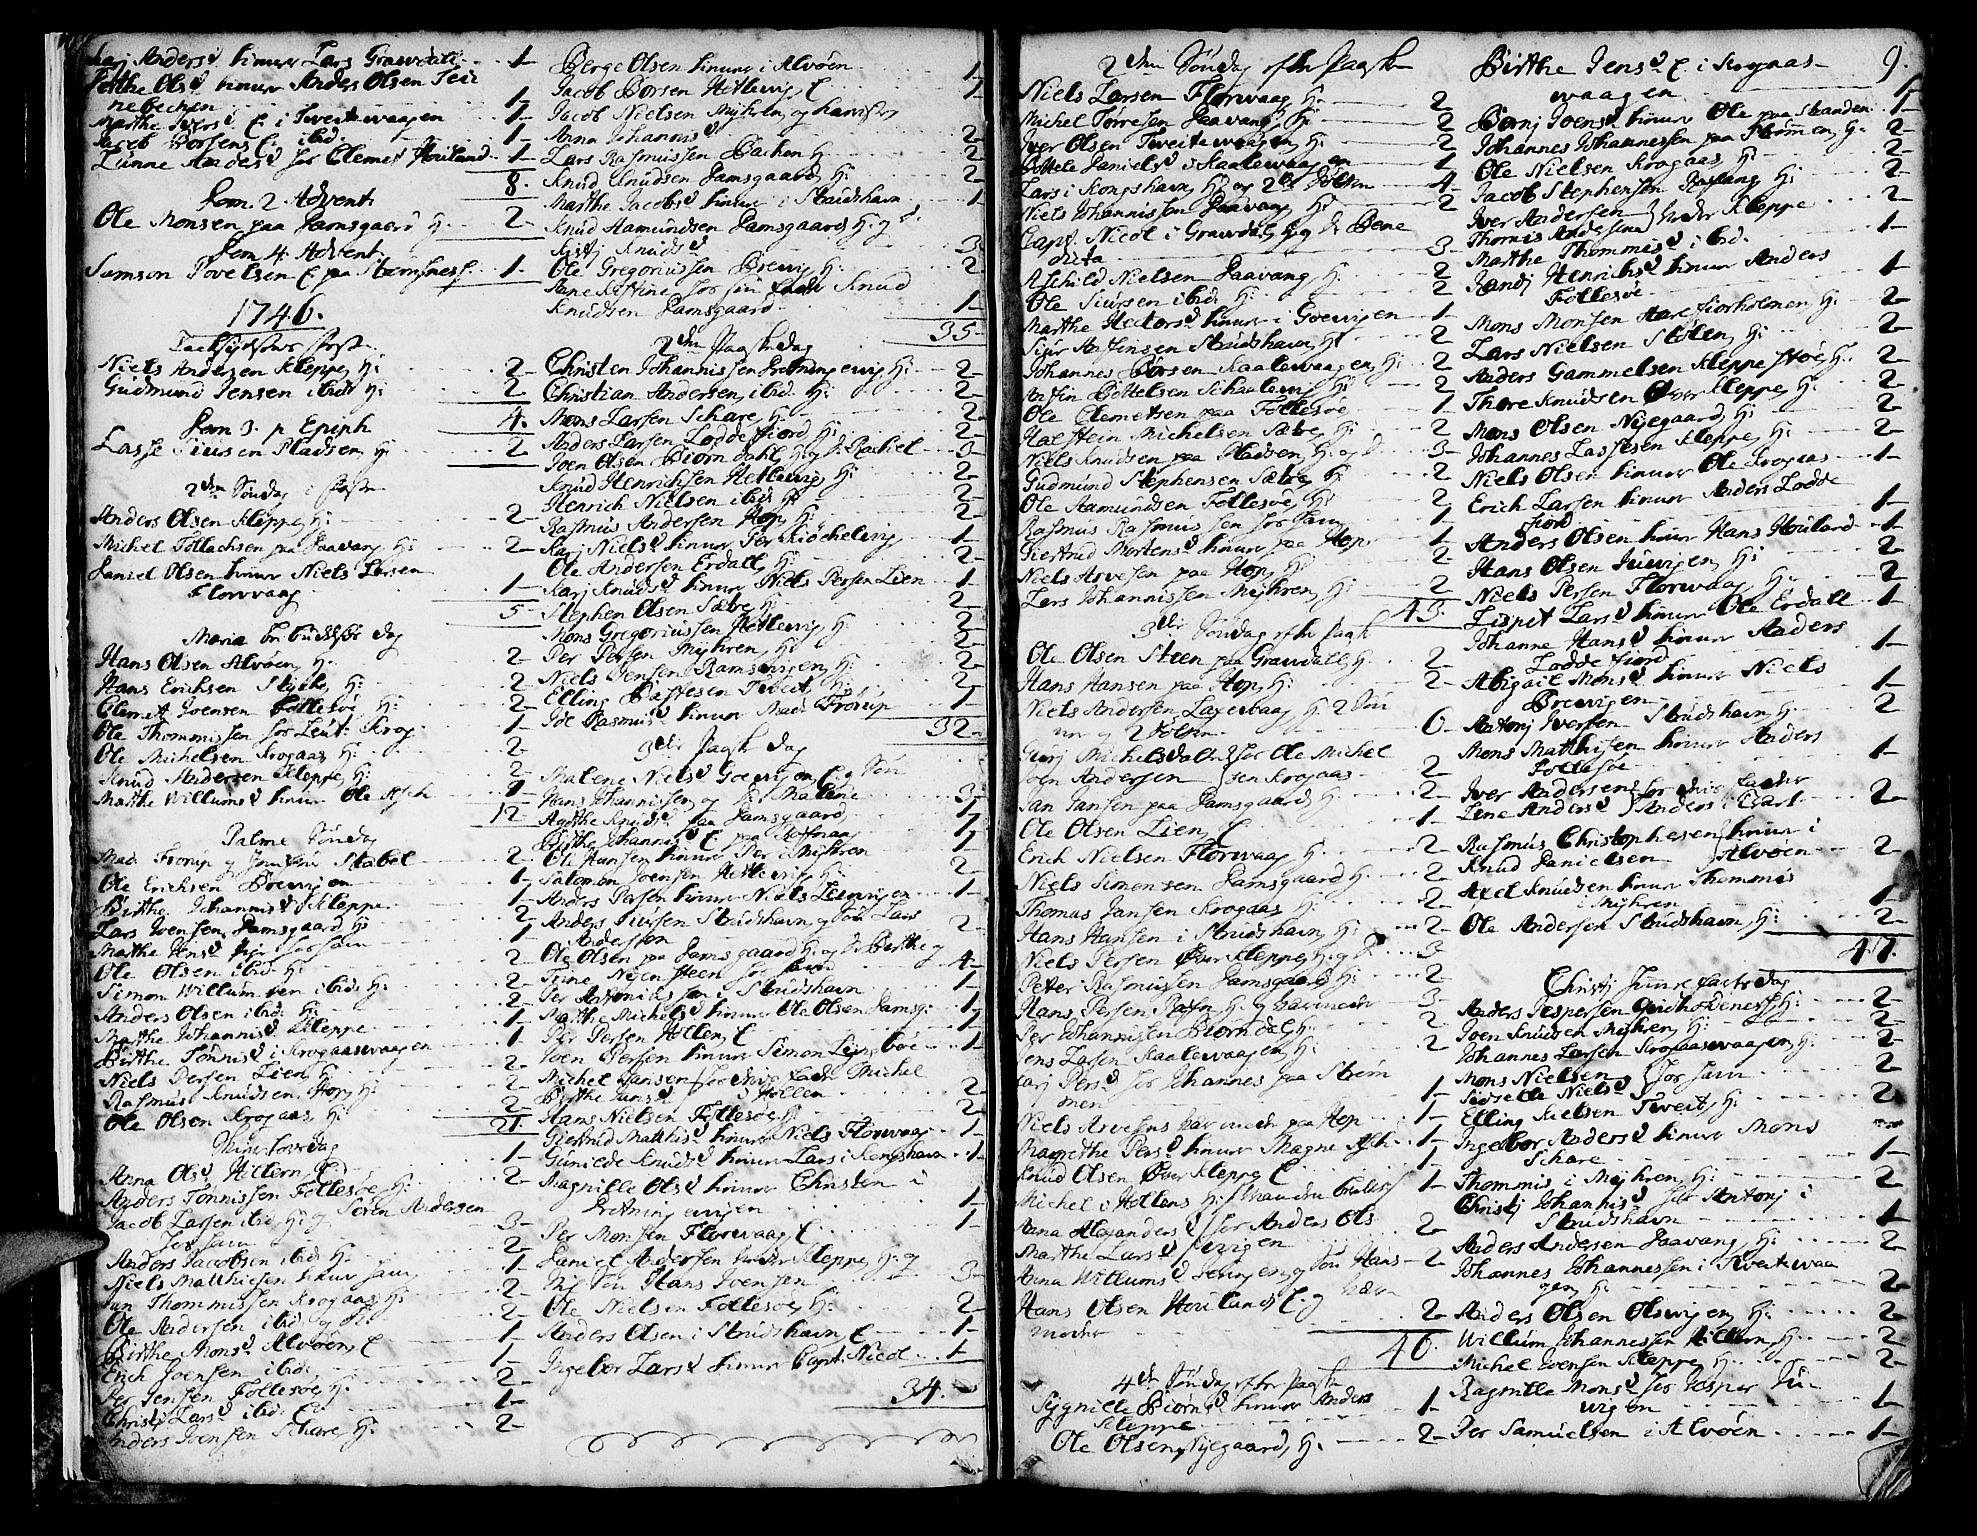 Karj Anders d tienner Lars Grawdal 1
Anders Olsen
nebechen 1
Marthe Ivers d E i Tweitewaagen 1
Jacob Børsen E ibid 1
Zinne Anders d for Clemet Houland 1
8.
Dom. 2 Advent
Ole Monsen paa Damsgaard H 2
Dom 4 Advent
Samson Povelsen E paa 1
1746.
Niels Andersen Kleppe H: 2
Gudmund Jensen ibid H: 2
4.
Dom 3. p Epiph
Lasse Siursen Pladsen, H 2
2den Søndag i Faste
Anders Olsen Kleppe, H: 2
Michel Tollachsen paa Gaavang H: 2
Daniel Olsen tienner Niels Larsen
Florwaag 1
5
Maria bebudelses dag
Hans Olsen Alvøen, H. 2
Hans Erichsen H: 2
Clemet Joensen Follesøe H: 2
Ole Thommissen for Leut: Krog 1
Ole Michelsen Krogaas H: 2
Knud Andersen Kleppe, H: 2
Marthe Willums d tienner Ole Asch 1
12
Palme Søndag
Mad. Frorup og Stabel 2
Ole Erichsen Brewigen 1
Birthe Johannis d Kleppe 1
Lars Joensen Damsgaard H: 2
Marthe Jens d 1
Ole Olsen ibid. H: 2
Simon Willumsen ibid. H: 2
Anders Olsen ibid. H: 2
Marthe Johannis d Kleppe 1
Birthe Tønnis d i Krogaaswaagen 1
Niels Persen Lien, H 2
Rasmus Knudsen Hop, H: 2
Ole Olsen Krogaas, H: 2
21.
Anna Ols d Hillern E 1
Anders Tønnissen Follesøe, H: 2
Jacob Larsen ibid. H: og Søren Andersen
3
Anders Jacobsen ibid H: 2
Niels Matthiesen 1
Jan Thommissen Krogaas H: 2
Ole Andersen ibid. 2
Birthe Mons d Alvøen, E 1
Erich Joensen ibid. 1
Per Jensen Follesøe, H. 2
Christj Lars d ibid. E 1
Anders Joensen Schare, H: 2
Børge Olsen tienner i Alvøen 1
Jacob Børsen Hetlewig E 1
Jacob Nielsen Myhren, og
Anna Johannis d 2
Lars Rasmussen Backen H 2
Knud Knudsen Damsgaard, H: 2
Marthe Jacobs d tienner i Strudshavn 1
Knud Aamundsen Damsgaard H: og d.
Kistj Knuds d 3
Ole Gregoriussen Brewig H: 2
Jane Kistine for sin fader Knud
Knudsen Damsgaard 1
35
2den Paaske dag
Christen Johannissen H: 2
Christian Andersen, ibid. H: 2
Mons Larsen Schare, H: 2
Anders Larsen Loddefiord, H: 2
Joen Olsen Biørndahl, H og d. Rachel 3
Knud Henrichsen Hetlewig, H: 2
Henrich Nielsen ibid. H: 2
Rasmus Andersen Hop, H: 2
Karj Niels d tienner Per Kiøchelwig 1
Ole Andersen Erdall, H: 2
Karj Knuds d tienner Niels Persen Lien 1
Stephen Olsen Sætre, H 2
Mons Gregoriussen Hetlewig, H: 2
Per Persen Myhren, H: 2
Niels Jensen Ramsewigen, H: 2
Elling Bastesen Tweit, H: 2
Ide Rasmus d tienner Mad. Frorup 1
32
3die Paaske dag
Malene Niels d Goewigen, E. og Søn
Hans Johannissen og d Malene 3
Agathe Knuds d paa Damsgaard 1
Birthe Johannis d E paa 1
Ole Hansen tienner Per i Myhren 1
Salomon Joensen Hetlewig H: 2
Anders Persen tienner Niels Liewigen 1
Anders Siursen i Strudshavn og Søn Lars
Andersen 2
Ole Olsen paa Damsgaard H: og d. Birthe og
Trine 4
Per Antoniussen i Strudshavn 1
Marthe Michels d tienner Ole Olsen Damsg: 1
Per Persen Hillen, E 1
Joen Persen tienner Simon Liungbøe 1
Michel Jansen for deris fader Michel
Birthe Jans d i Hollen 2
Hans Nielsen Follesøe, H 2
Giertrud Matthis d tienner Niels Florwaag 1
Gunilde Knuds d tienner Lars i Kongshavn 1
Magnille Ols d tienner Christen i
1
Per Monsen Florwaag E 1
Daniel Andersen under Kleppe, H: og
Søn Hans Joensen 3
Ole Nielsen Follesøe, H: 2
Anders Olsen i Strudshavn, E 1
Ingebor Lars d tienner Capt. Nicol 1
34.
9.
2den Søndag efter Paaske
Niels Larsen Florwaag H: 2
Michel Torresen Gaavang H: 2
Iver Olsen Tweitewaagen H: 2
Bottele Daniels d i Skaalewaagen 1
Lars i Kongshavn, H: og 2de Folk 4
Niels Johannissen Gaavang H: 2
Capt. Nicol i Grawdal H: og d. Bene
dicta 3
Aschild Nielsen Gaavang H: 2
Ole Siursen ibid. H: 2
Marthe Hectors d tienner i Goewigen 1
Siur Anfinsen Strudshavn, H: 2
Johannes Børsen Skaalewaagen, H: 2
Anfin Bottelsen Schaalewig H: 2
Ole Clemetsen paa Follesøe 1
Halstein Michelsen Sætre, H: 2
Niels Knudsen paa Pladsen, H: og d 3
Gudmund Stephensen Sætre, H 2
Ole Aamundsen Follesøe, H: 2
Rasmus Rasmussen for Jann 1
Giertrud Mortens d tienner paa Hop 1
Niels Arvesen paa Hop, H: 2
Lars Johannissen Myhren, H: 2
43.
3die Søndag efter Paaske
Ole Olsen Steen paa Grawdall, H 2
Hans Hansen paa Hop, H: 2
Niels Andersen Laxewaag H 2 Søn
ner og 2 Folk 6
Siurj Michelsdatr for Ole Michel
Joen Andersen sen Krogaas 2
Jan Jansen paa Damsgaard H 2
Ole Olsen Lien, E 1
Erich Nielsen Florwaag H: 2
Niels Simensen Damsgaard H: 2
Thomas Jansen Krogaas H: 2
Hans Hansen i Strudshavn, H: 2
Niels Persen Øvre Kleppe, H: og d 3
Peter Rasmussen Damsgaard H: 2
Hans Persen H: og værmoder 3
Per Johannissen Biørndal, H: 2
Jens Larsen Skaalewaagen H: 2
Karj Pers d for Johannes paa Strøm
men 1
Niels Arvesens værmoder paa Hop 1
Magrethe Pers d tienner Magne Ask 1
Knud Olsen Øvre Kleppe E 1
Michel i Hollens H: 1
Anna Alexanders d for Anders Ols
Marthe Lars d 2
Anna Willums d og Søn Hans 2
Hans Olsen Houland E. og vær
moder 2
40.
4de Søndag efter Paaske
Sygnille Biørns d tienner Anders
Kleppe 1
Ole Olsen Nyegaard, H. 2
Birthe Jens d E. i Krogaas-
waagen 1
Børnj Joens d tienner Ole paa Stranden 1
Johannes Johannessen paa Strømen, H: 2
Ole Nielsen Krogaas, H: 2
Jacob Stephensen H: 2
Iver Andersen
Thomis Andersen under Kleppe 2
Marthe Thommis d ibid. 1
Randj Henrichs d tienner Anders
Follesøe 1
Mons Monsen Harefiorholmen, H: 2
Lars Nielsen Stølen, H: 2
Anders Gammelsen Kleppestøe, H: 2
Thore Knudsen Øvre Kleppe, H: 2
Mons Olsen Nyegaard, H: 2
Johannes Lassesen Kleppe, H: 2
Niels Olsen tienner Ole Krogaas 1
Erich Larsen tienner Anders Lodde
fiord 1
Anders Olsen tienner Hans Houland 1
Hans Olsen Juwigen, H: 2
Niels Persen Florwaag, H: 2
Lispet Lars d tienner Ole Erdall 1
Johanne Hans d tienner Anders
Loddefiord 1
Abigail Mons d tienner Niels
Brewigen 1
Antonj Iversen Strudshavn H: 2
Mons Matthisen tienner Anders
Follesøe 1
Iver Andersen for deris fader
Lene Anders d Anders i Quarl 2
Rasmus Christophersen tienner i
Knud Danielsen Alvøen 2
Axel Knudsen tienner Thommis
i Myhren 1
Ole Andersen Strudshavn, H: 2
47.
Christj Himmelfarts dag
Anders Jespersen H: 2
Joen Knudsen Myhren, H: 2
Johannes Larsen Krogaaswaagen, H: 2
Mons Nielsen
Sidselle Niels d 2
Elling Nielsen Tweit, H: 2
Ingebor Anders d tienner Mons
Schare 1
Thommis i Myhren, H: 2
Christj Johannis d for Antonj i
Strudshavn 1
Anders Andersen Gaavang, H: 2
Johannes Johannessen i Tweitewaa
gen, H: 2
Anders Olsen Olswigen, H: 2
Willum Johannessen Hillern, H: 2
Michel Joensen Kleppe, H. 2
Ragnille Mons d for Jesper Ju-
wigen 1
Per Samuelsen i Alvøen 1